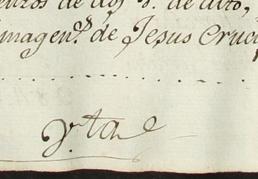 de dos v.s de alto,
imagen.s de Jesus Cruci
V.ta